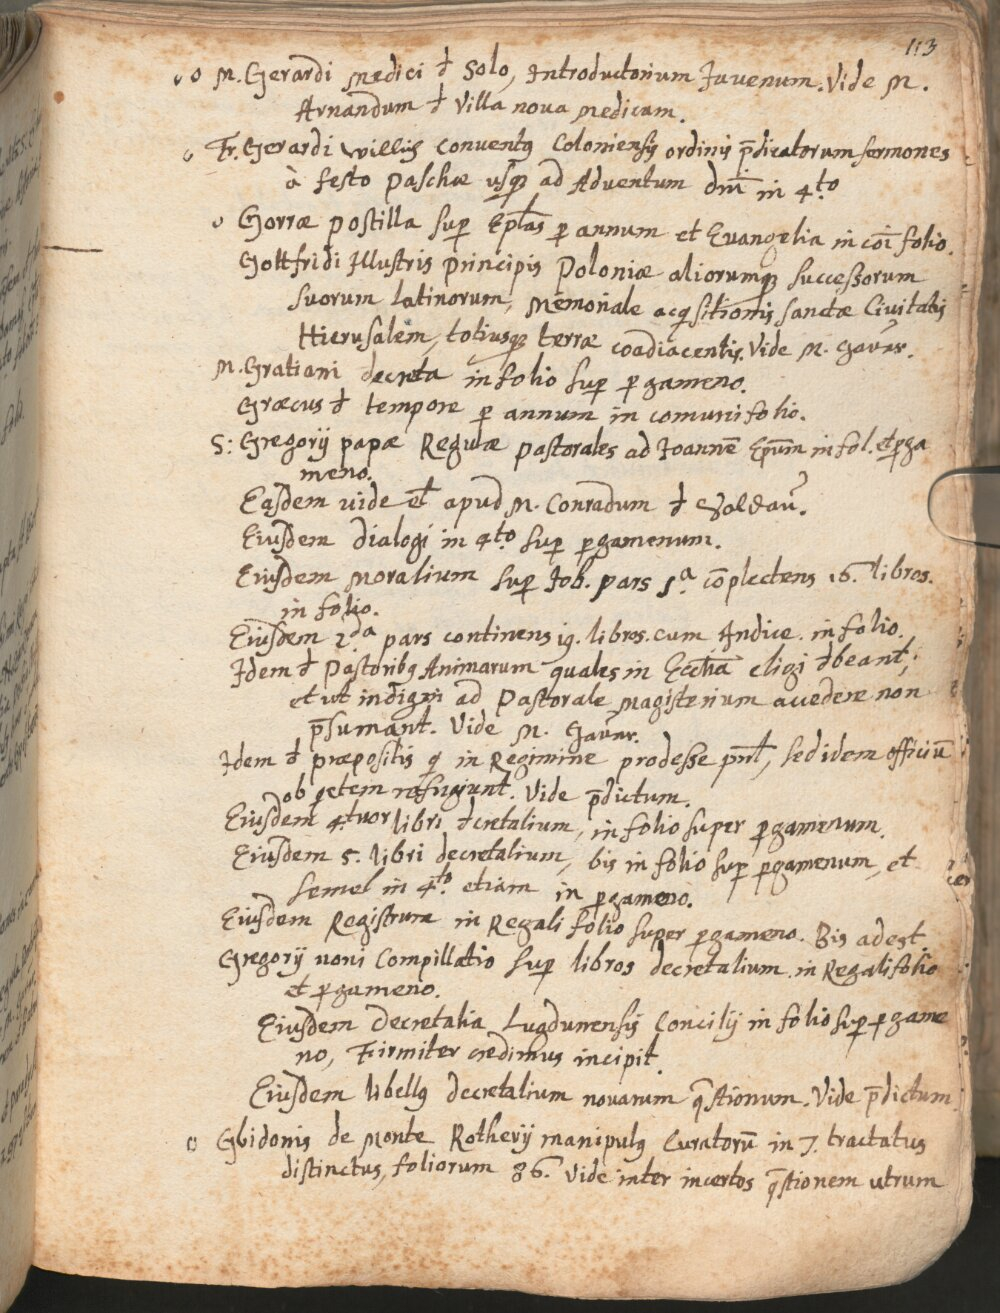 113
o M. Gerardi Medici đ Solo, Introductorium Juvenum. Vide M.
Arnandum đ Villa nova Medicum.
Fr. Gerardi Willijs conventq Coloniensis ordinis p̄dicatorum sermones
à festo Paschæ usq̢ ad Adventum dnī in 4.to
Gorræ postilla sup Ep̄l̄as p annum et Evangelia in cōi folio.
Gottfridi Illustris Principis Poloniæ aliorumq̢ successorum
suorum latinorum, Memoriale acq̢sitionis sanctæ Civitatis
Hierusalem, totiusq̢ terræ coadiacentis. Vide M. Gavnr.
M. Gratiani decreta in folio sup pgameno.
Græcus đ tempore p annum in comuni folio.
S: Gregorij papæ Regulæ pastorales ad Joannē Ep̄um in fol. et pga
meno.
Easdem vide et apud M. Conradum đ Soldav.
Eiusdem dialogi in 4.to sup pgamenum.
Eiusdem Moralium sup Job. pars 1.a cōplectens 16. libros.
in folio.
Eiusdem 2.da pars continens 19. libros. cum Indice. in folio.
Idem đ Pastoribq Animarum quales in Eccl̄ia eligi đbeant,
et ut indigni ad Pastorale magisterium accedere non
p̄sumant. Vide M. Gavnr.
Idem đ præpositis q̢ in Regimine prodesse pn̄t, sed idem officiū
ob q̢etem refugiunt. Vide p̄dictum.
Eiusdem 4.tuor libri đcretalium, in folio super pgamenum.
Eiusdem 5. libri decretalium, bis in folio sup pgamenum, et
semel in 4.to etiam in pgameno.
Eiusdem Registrum in Regali folio super pgameno. Bis adest.
Gregorij noni Compillatio sup libros decretalium in Regali folio
et pgameno.
Eiusdem decretalia Lugdunensis Concilij in folio sup pgame
no, Firmiter credimus incipit.
Eiusdem libellq decretalium novarum q̄stionum. Vide p̄dictum.
o Gbidonis de Monte Rotherij manipulq Curatorū in 7. tractatus
distinctus, foliorum 86. Vide inter incertos q̄stionem utrum